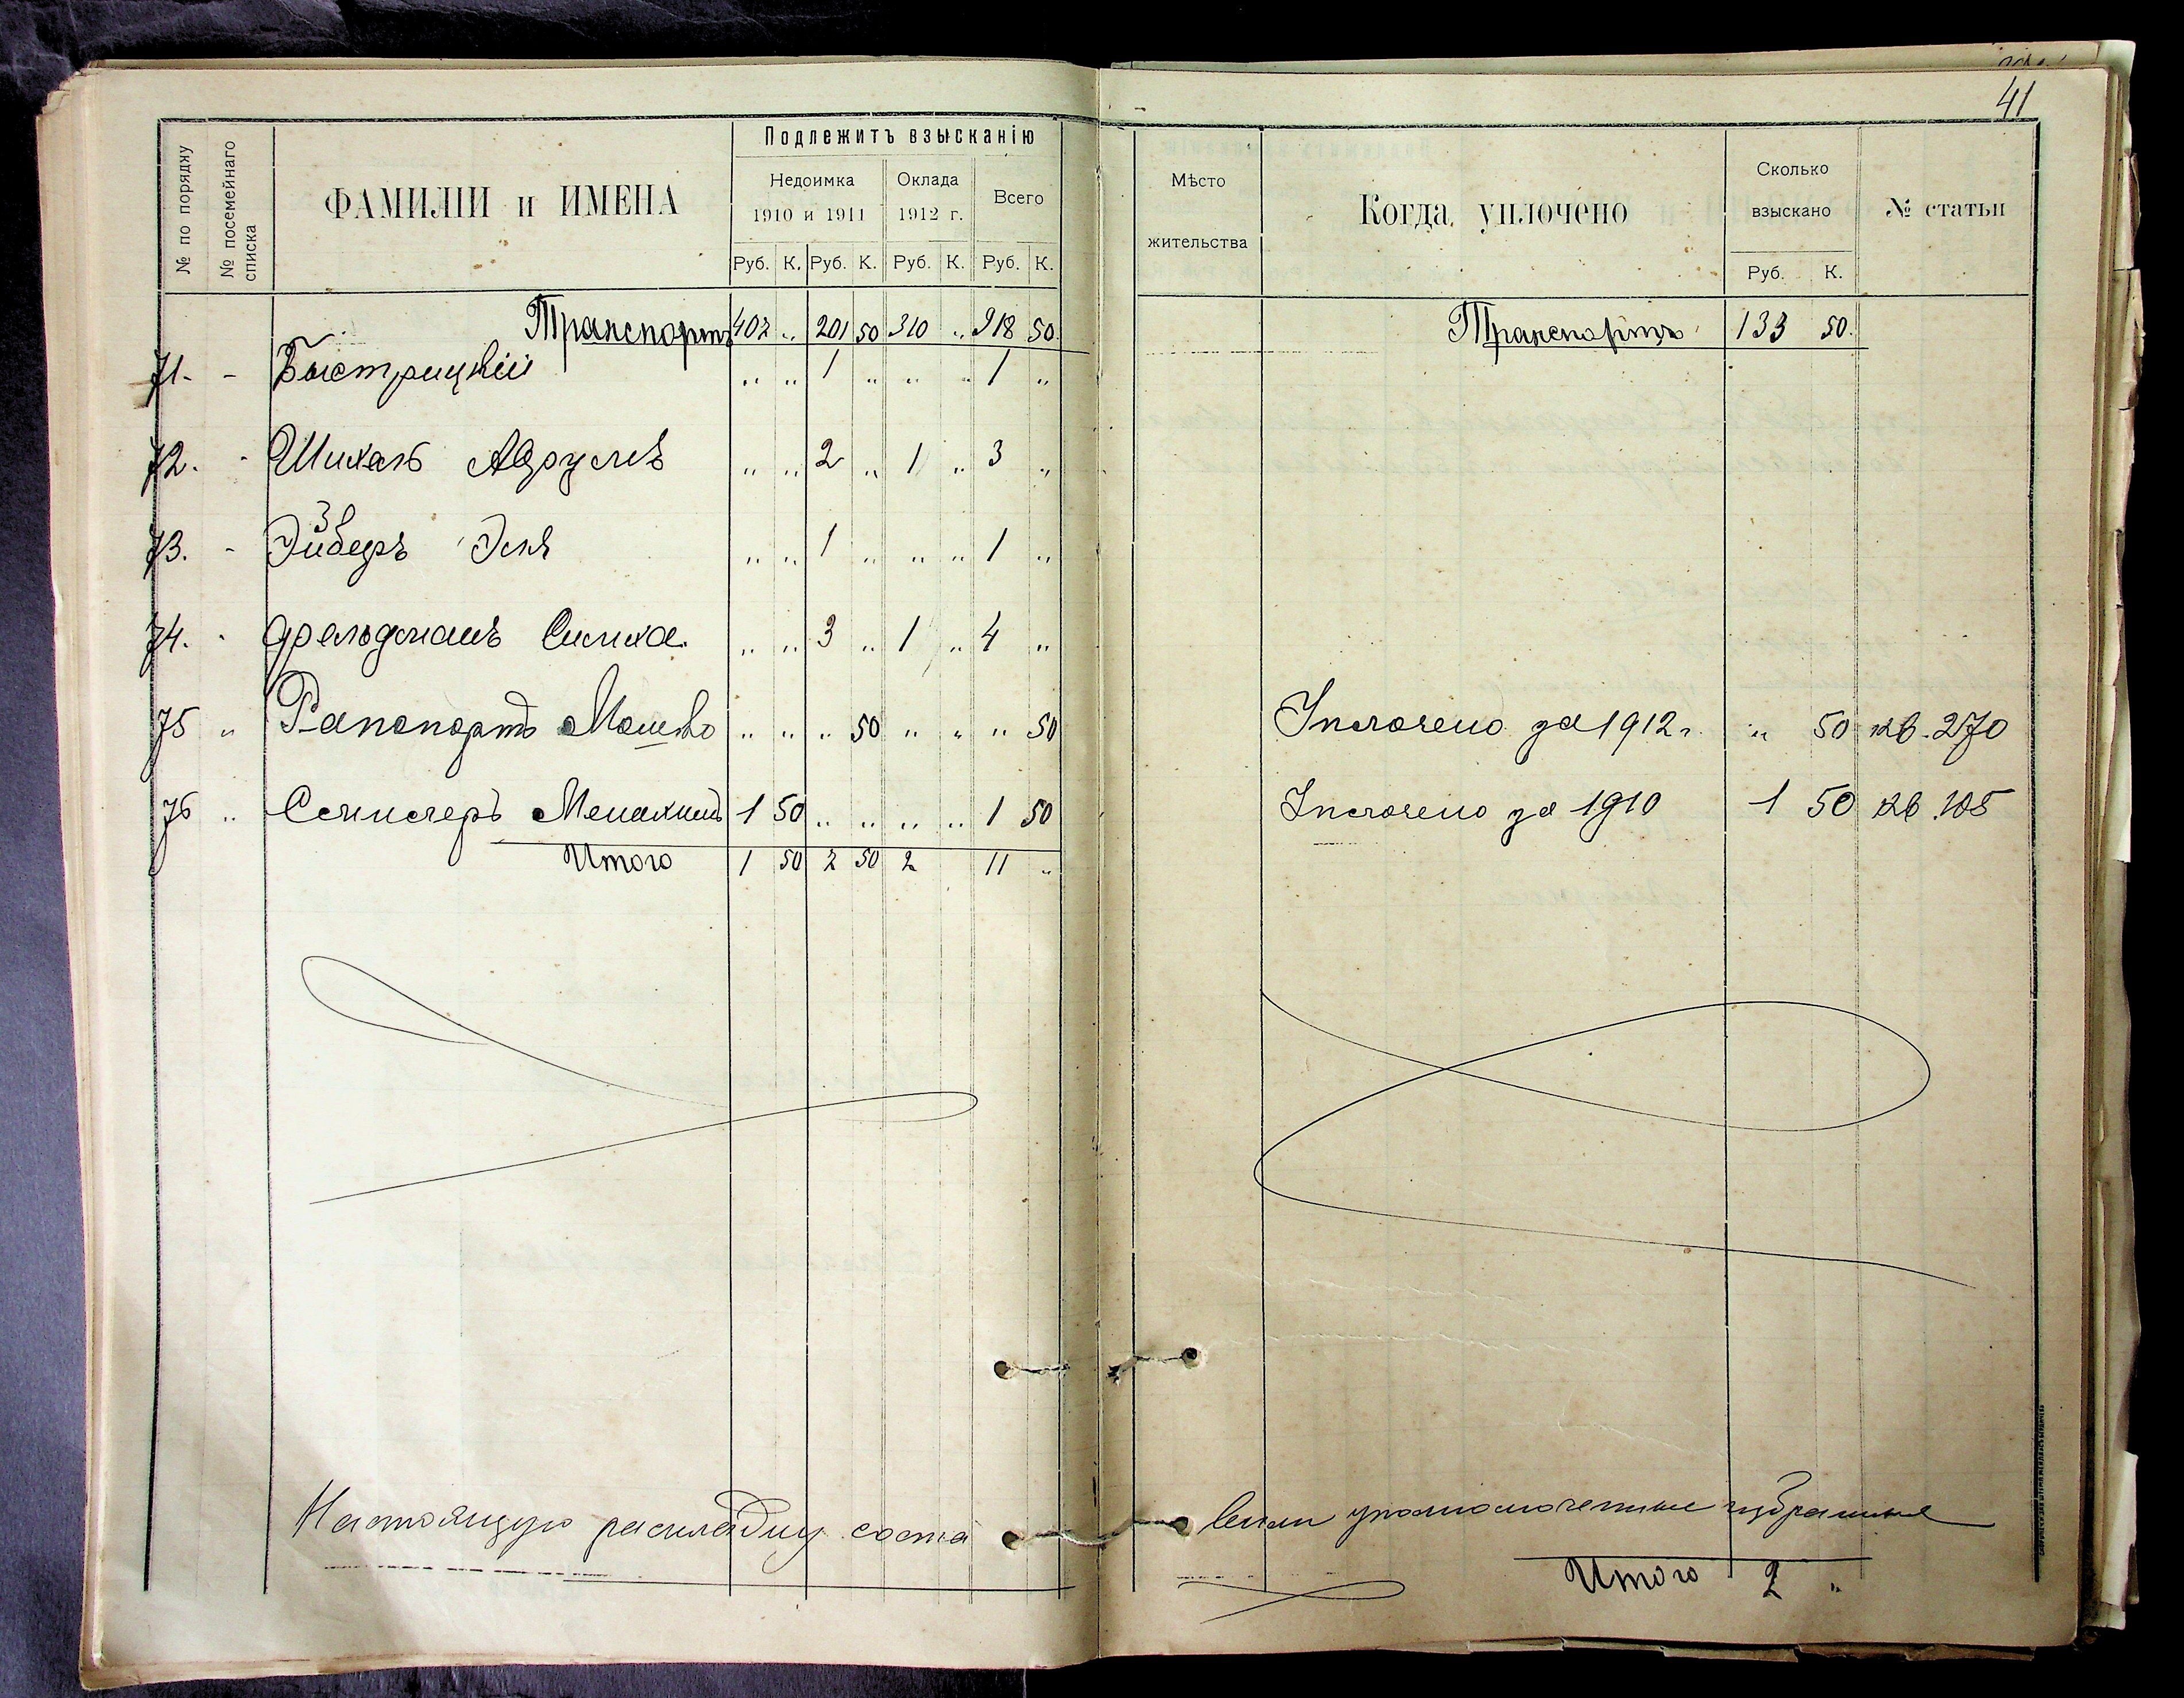 41
№ по порядку
№ посемейнаго списка
ФАМИЛІИ и ИМЕНА
Подлежитъ взысканію
Недоимка 1910 и 1911
Оклада 1912 г.
Всего
Руб. К. Руб. К. Руб. К. Руб. К.
Мѣсто жительства
Когда уплочено
Сколько взыскано
Руб. К.
№ статьи
Транспортъ 402 " 201 50 310 " 918 50 Транспортъ 133 50
71. - Быстрицкій " " 1 " " " 1 "
72. - " " 2 " 1 " 3 "
73. - " " 1 " " " 1 "
74. - Фельдманъ Симха " " 3 " 1 " 4 "
75 " Рапопортъ " " " 50 " " " 50 Уплочено за 1912 г. " 50 кв. 270
76 " 1 50 " " " " 1 50 Уплочено за 1910 1 50 кв. 105
Итого 1 50 2 50 2 11 "
Настоящую раскладку соста
вили уполномоченные избранные
Итого 2 "